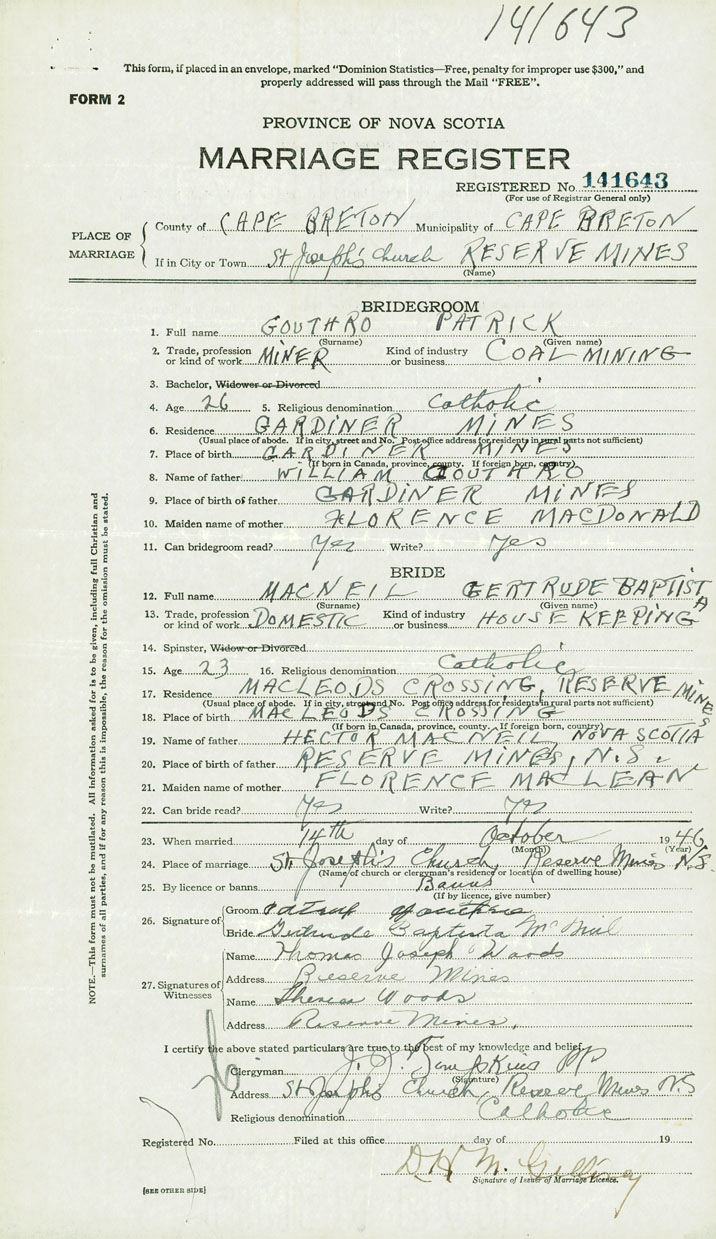 141643
This form, if placed in an envelope, marked "Dominion Statistics—Free, penalty for improper use $300," and
properly addressed will pass through the Mail "FREE".
FORM 2
PROVINCE OF NOVA SCOTIA
MARRIAGE REGISTER
REGISTERED No. 141643
(For use of Registrar General only)
PLACE OF MARRIAGE
County of CAPE BRETON Municipality of CAPE BRETON
If in City or Town St Joseph's Church RESERVE MINES
(Name)
BRIDEGROOM
1. Full name GOUTHRO PATRICK
(Surname) (Given name)
2. Trade, profession or kind of work MINER Kind of industry or business COAL MINING
3. Bachelor, Widower or Divorced
4. Age 26 5. Religious denomination Catholic
6. Residence GARDINER MINES
(Usual place of abode. If in city, street and No. Post office address for residents in rural parts not sufficient)
7. Place of birth GARDINER MINES
(If born in Canada, province, county. If foreign born, country)
8. Name of father WILLIAM GOUTHRO
9. Place of birth of father GARDINER MINES
10. Maiden name of mother FLORENCE MACDONALD
11. Can bridegroom read? Yes Write? Yes
BRIDE
12. Full name MACNEIL GERTRUDE BAPTISTA
(Surname) (Given name)
13. Trade, profession or kind of work DOMESTIC Kind of industry or business HOUSE KEEPING
14. Spinster, Widow or Divorced
15. Age 23 16. Religious denomination Catholic
17. Residence MACLEODS CROSSING, RESERVE MINES
(Usual place of abode. If in city, street and No. Post office address for residents in rural parts not sufficient)
18. Place of birth MACLEODS CROSSING
(If born in Canada, province, county. If foreign born, country)
19. Name of father HECTOR MACNEIL NOVA SCOTIA
20. Place of birth of father RESERVE MINES, N.S.
21. Maiden name of mother FLORENCE MACLEAN
22. Can bride read? Yes Write? Yes
23. When married 14th day of October 1946
(Month) (Year)
24. Place of marriage St. Joseph's Church, Reserve Mines N.S.
(Name of church or clergyman's residence or location of dwelling house)
25. By licence or banns Banns
(If by licence, give number)
26. Signature of
Groom Patrick Gouthro
Bride Gertrude Baptista McNeil
27. Signatures of Witnesses
Name Thomas Joseph Woods
Address Reserve Mines
Name Theresa Woods
Address Reserve Mines,
I certify the above stated particulars are true to the best of my knowledge and belief.
Clergyman J. J. Tompkins PP
(Signature)
Address St Joseph's Church, Reserve Mines N.S
Religious denomination Catholic
Registered No. Filed at this office day of 19
D H M. Gillivray
Signature of Issuer of Marriage Licence.
[SEE OTHER SIDE]
NOTE.—This form must not be mutilated. All information asked for is to be given, including full Christian and
surnames of all parties, and if for any reason this is impossible, the reason for the omission must be stated.